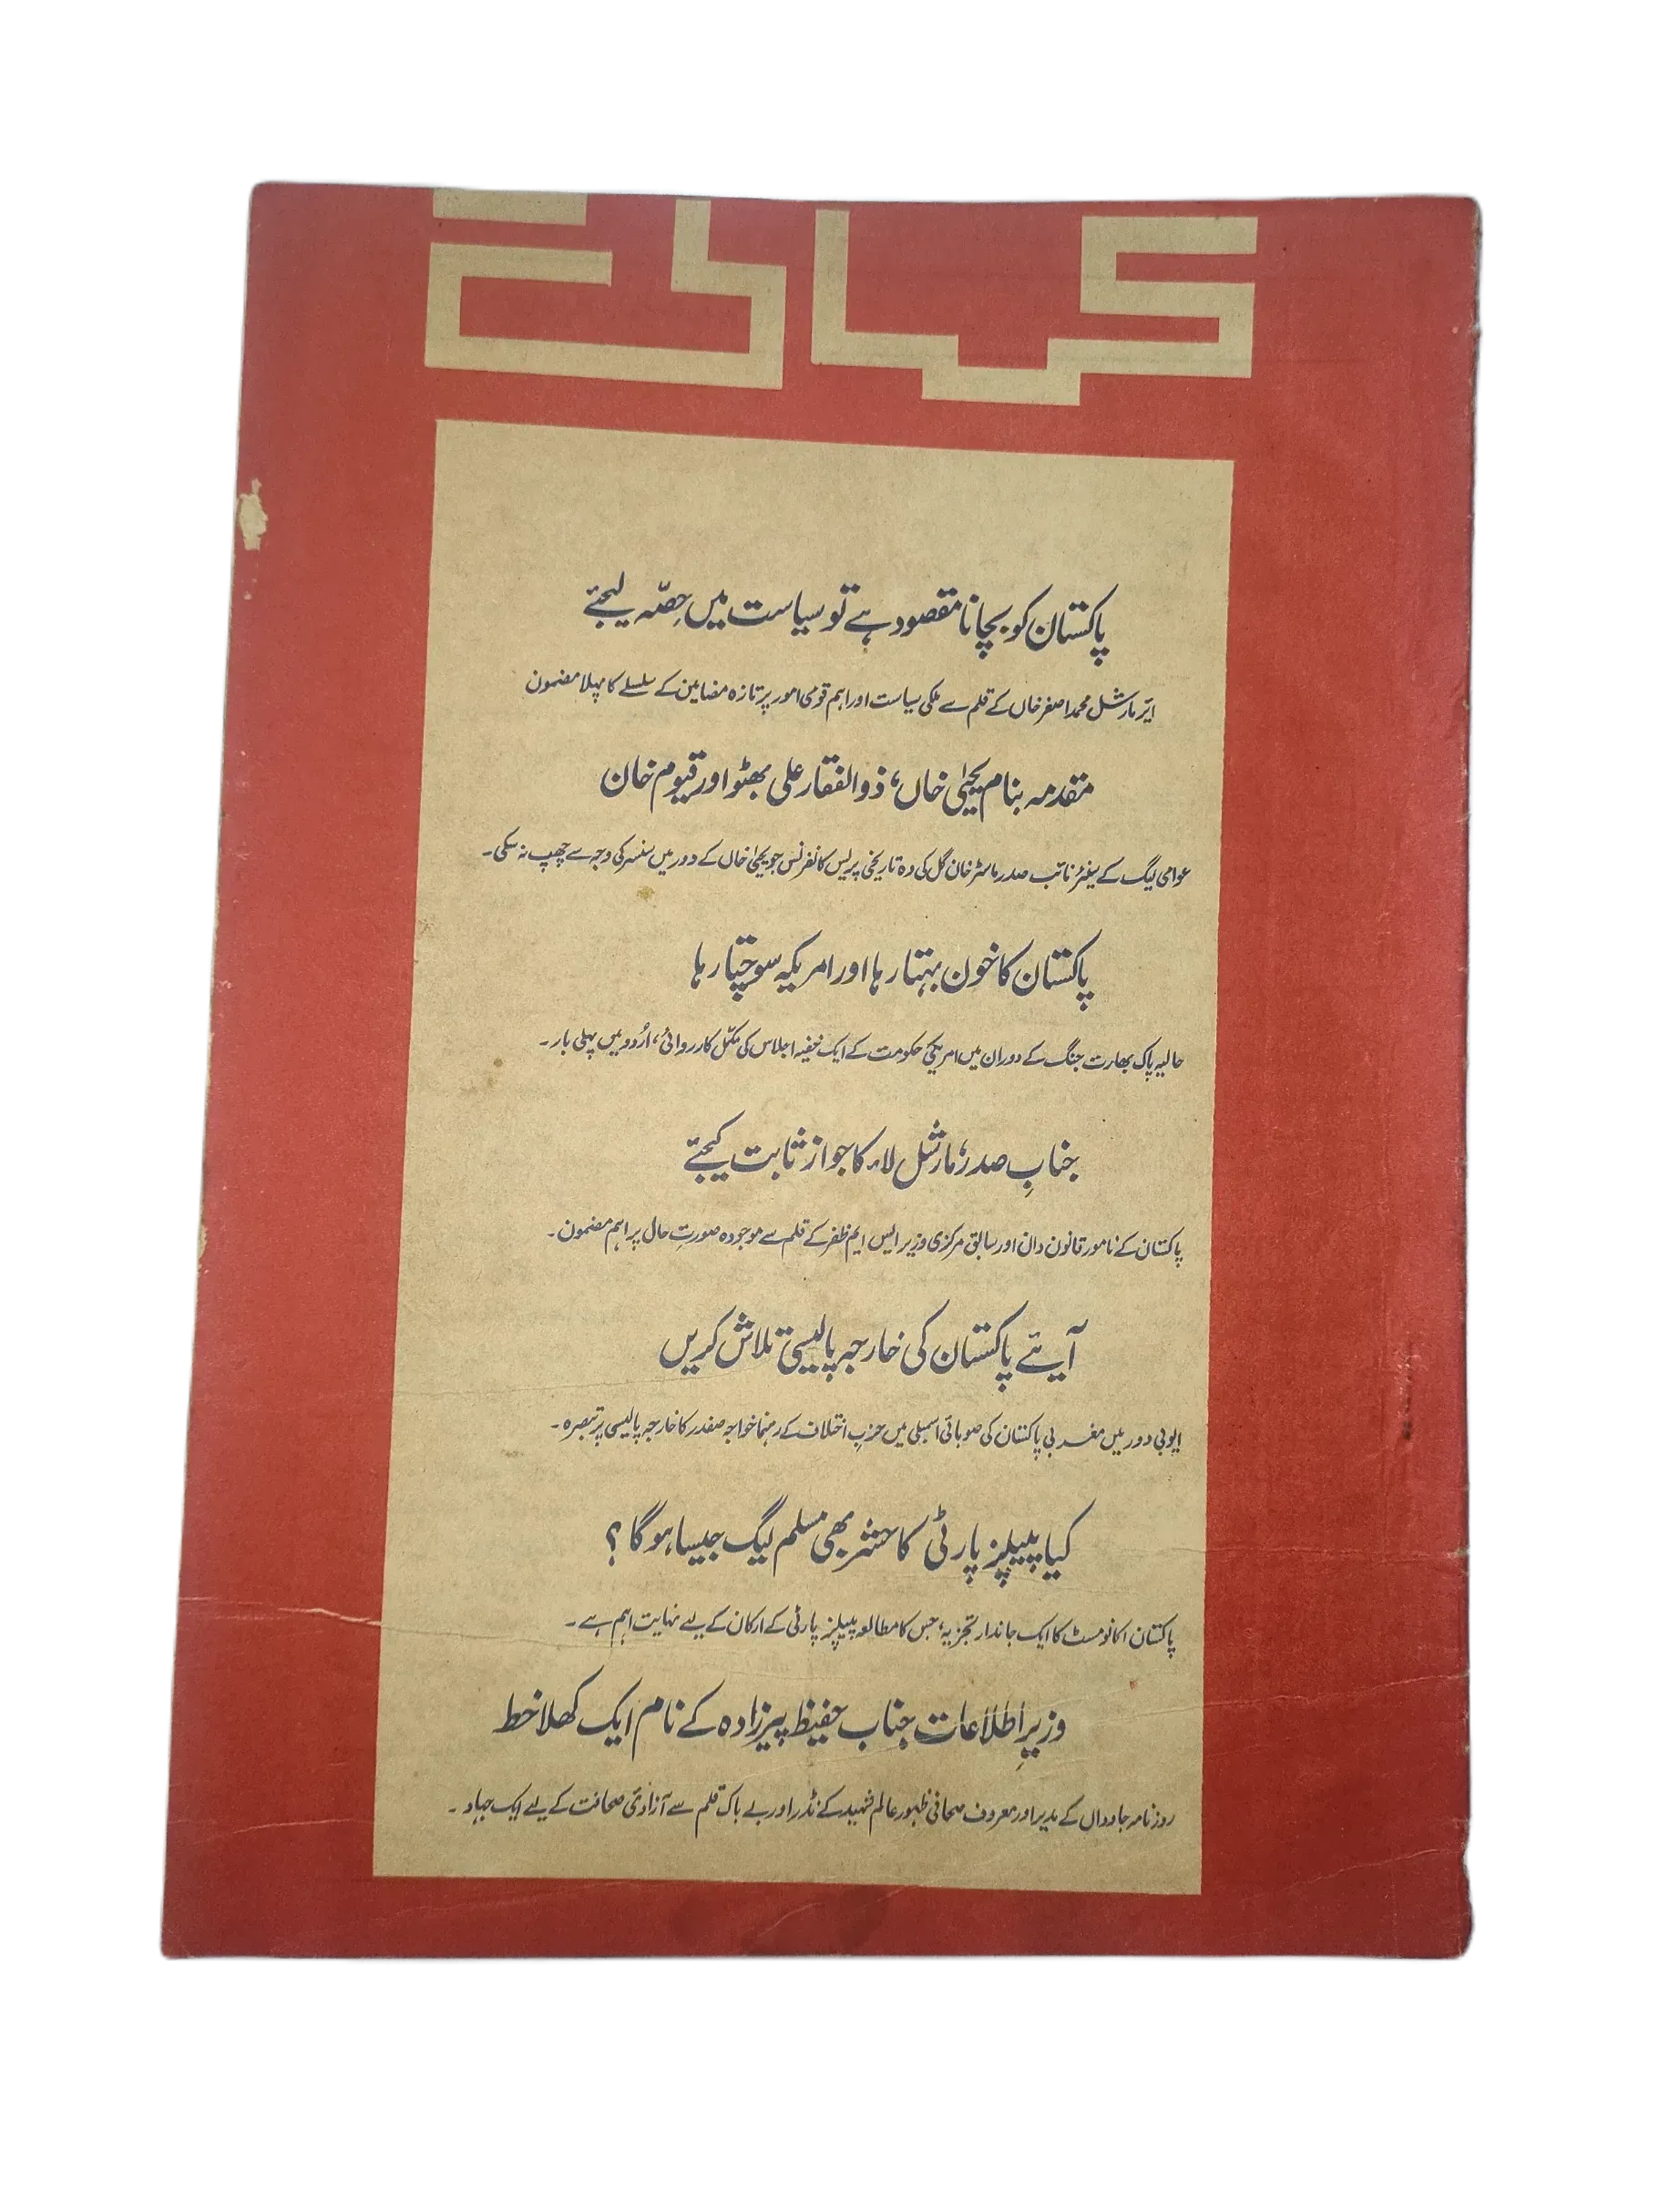 کہانی
پاکستان کو بچانا مقصود ہے تو سیاست میں حِصّہ لیجئے
ایر مارشل محمد اصغر خاں کے قلم سے ملکی سیاست اور اہم قومی امور پر تازہ مضامین کے سلسلے کا پہلا مضمون
مقدمہ بنام یحییٰ خاں، ذوالفقار علی بھٹو اور قیوم خان
عوامی لیگ کے سینئر نائب صدر ماسٹر خان گل کی وہ تاریخی پریس کانفرنس جو یحییٰ خاں کے دور میں سنسر کی وجہ سے چھپ نہ سکی۔
پاکستان کا خون بہتا رہا اور امریکہ سوچتا رہا
حالیہ پاک بھارت جنگ کے دوران میں امریکی حکومت کے ایک خفیہ اجلاس کی مکمّل کارروائی، اُردو میں پہلی بار۔
جنابِ صدر، مارشل لاء کا جواز ثابت کیجئے
پاکستان کے نامور قانون دان اور سابق مرکزی وزیر ایس ایم ظفر کے قلم سے موجودہ صورتِ حال پر اہم مضمون۔
آیئے پاکستان کی خارجہ پالیسی تلاش کریں
ایوبی دور میں مغربی پاکستان کی صوبائی اسمبلی میں حزبِ اختلاف کے رہنما خواجہ صفدر کا خارجہ پالیسی پر تبصرہ۔
کیا پیپلز پارٹی کا حشر بھی مسلم لیگ جیسا ہو گا؟
پاکستان اکانومسٹ کا ایک جاندار تجزیہ، جس کا مطالعہ پیپلز پارٹی کے ارکان کے لیے نہایت اہم ہے۔
وزیرِ اطلاعات جناب حفیظ پیرزادہ کے نام ایک کھلا خط
روزنامہ جاوداں کے مدیر اور معروف صحافی ظہور عالم شہید کے نڈر اور بے باک قلم سے آزادیٔ صحافت کے لیے ایک جہاد۔